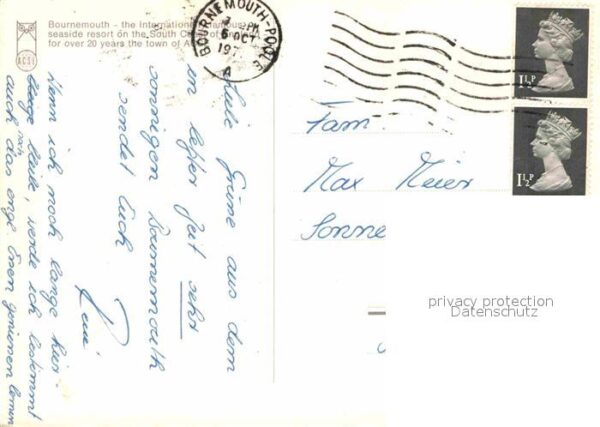 Bournemouth - the International famous
seaside resort on the South Coast of England
for over 20 years the town of ACSE
ACSE
BOURNEMOUTH-POOLE
6 OCT
197
A
1½P
1½P
Liebe Grüsse aus dem
in letzter Zeit sehr
sonnigen Bournemouth
sendet Euch
René
Wenn ich noch lange hier-
bleibe, werde ich bestimmt
auch noch das engl. Essen geniessen lernen
Fam.
Max Meier
Sonne
privacy protection
Datenschutz